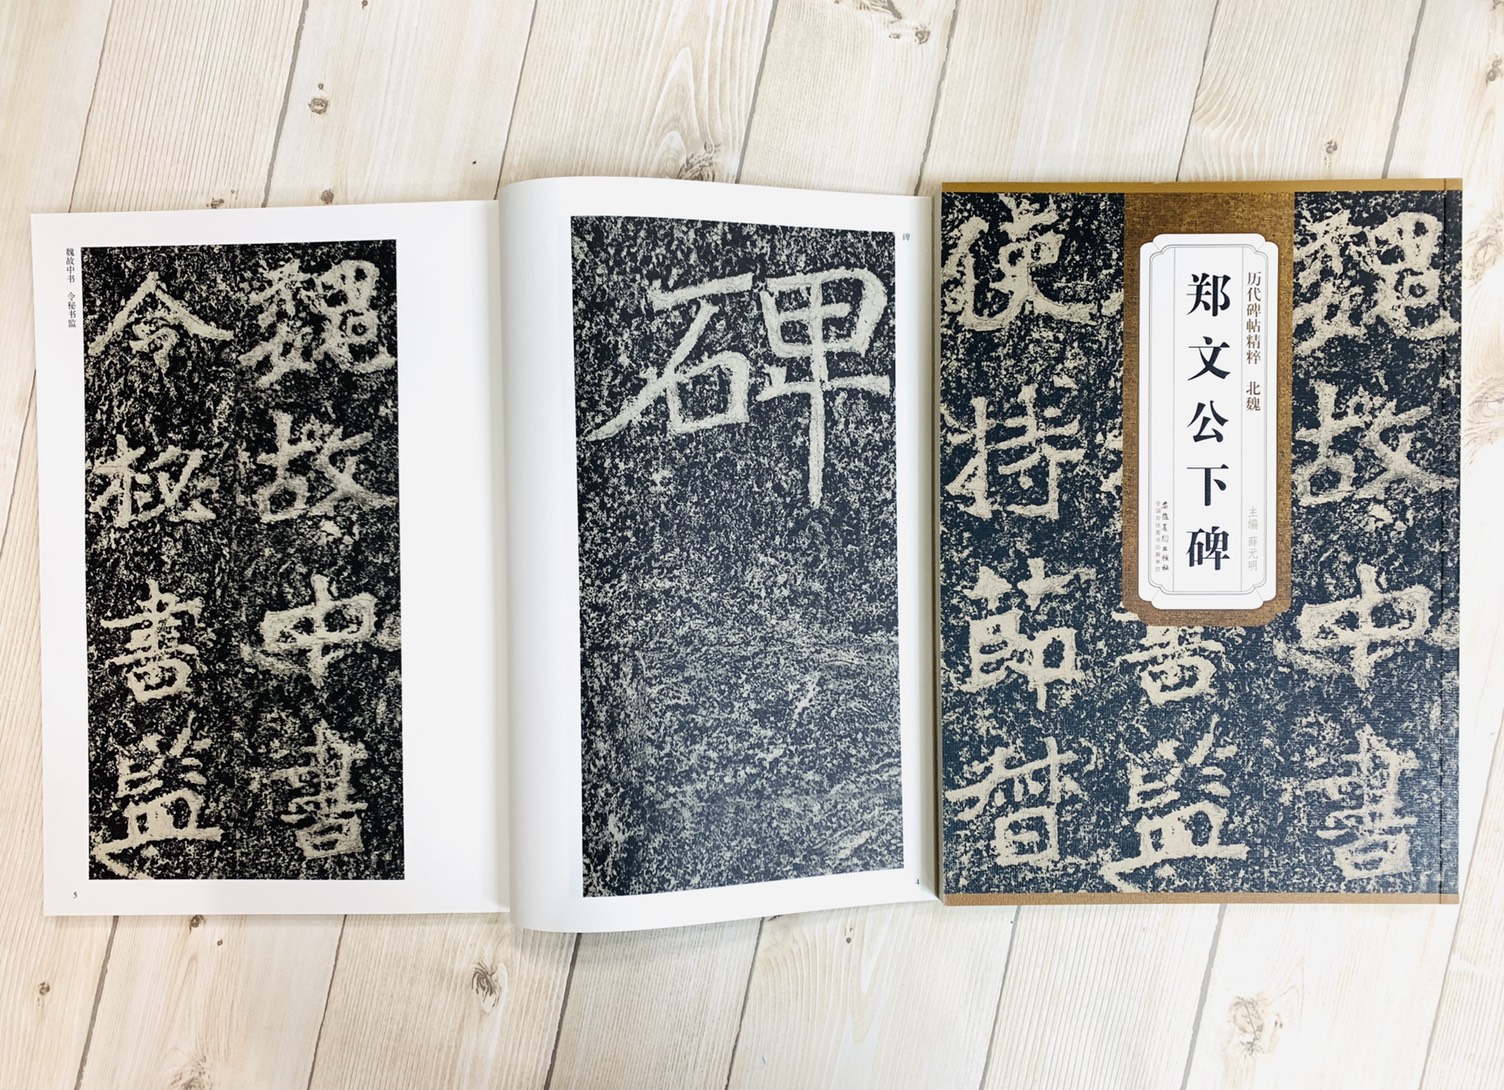 魏故中书　令秘书监
魏故中書
令祕書監
5
碑
碑
4
历代碑帖精粹　北魏
郑文公下碑
主编　薛元明
安徽美术出版社
魏故中書
書監
使持節督